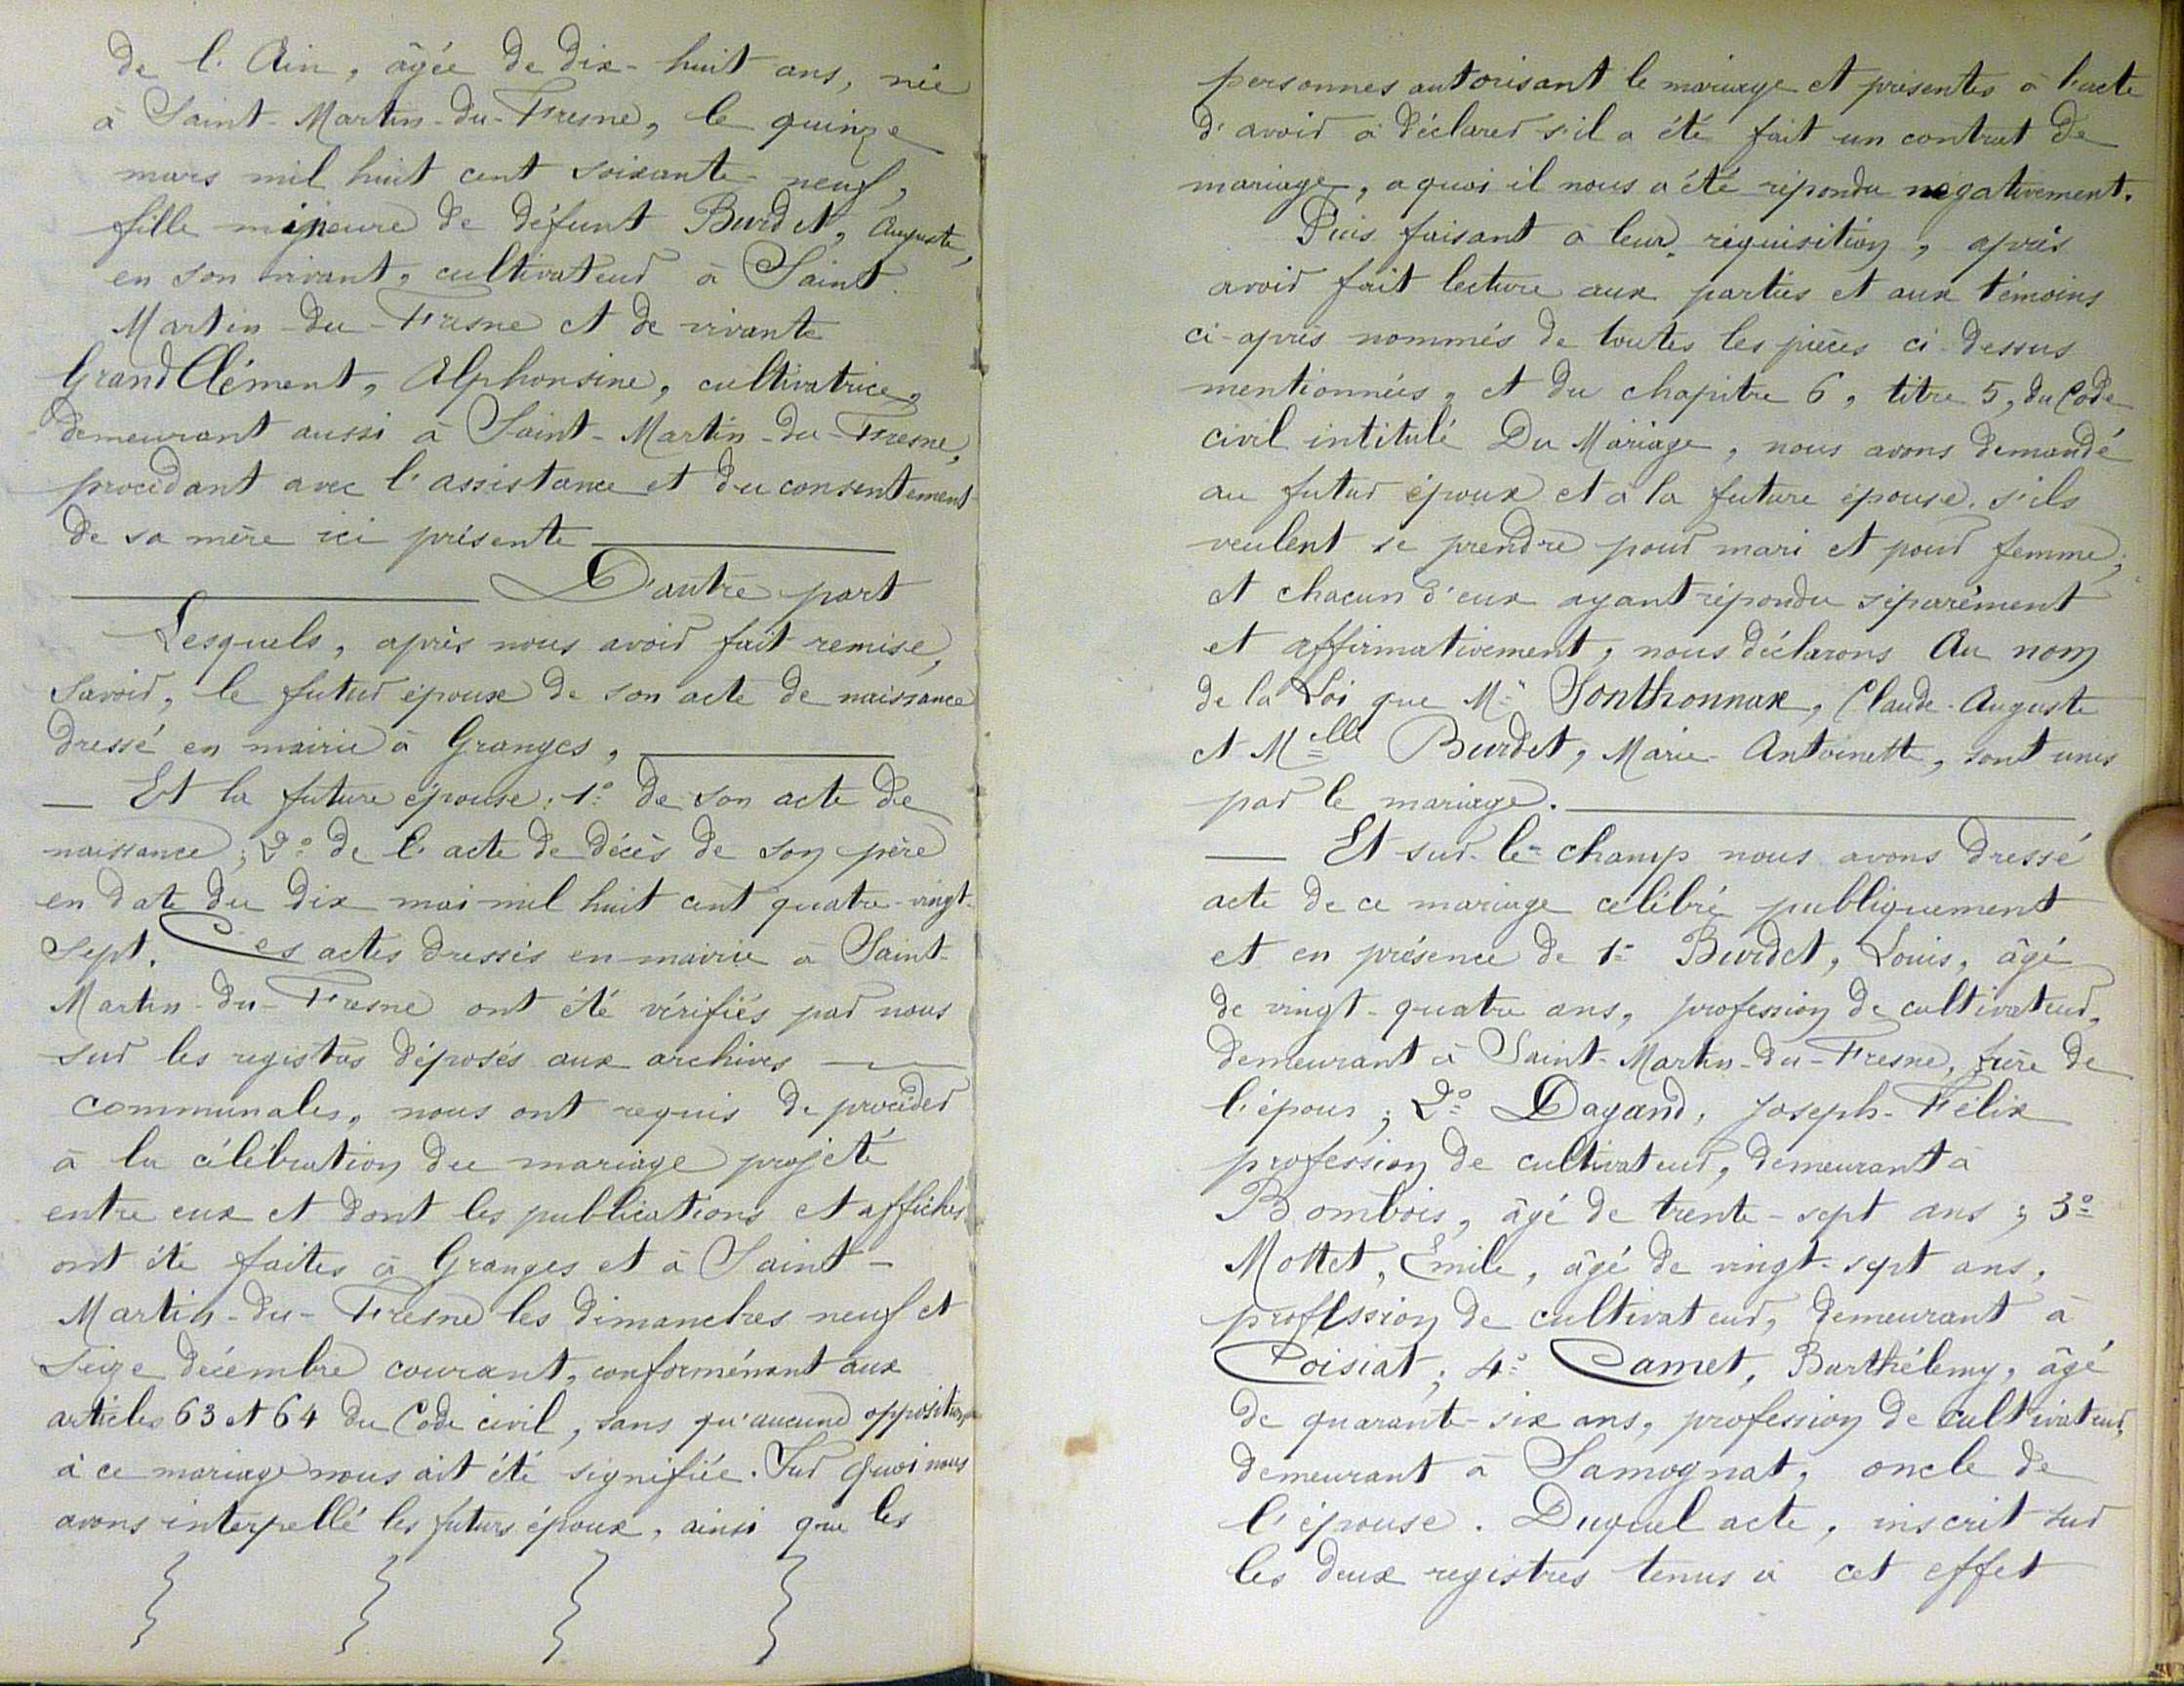 de l'Ain, âgée de dix-huit ans, née
à Saint-Martin-du-Fresne, le quinze
mars mil huit cent soixante-neuf,
fille mineure de défunt Burdet, Auguste,
en son vivant, cultivateur à Saint
Martin-du-Fresne et de vivante
GrandClément, Alphonsine, cultivatrice,
demeurant aussi à Saint-Martin-du-Fresne,
procédant avec l'assistance et du consentement
de sa mère ici présente
D'autre part
Lesquels, après nous avoir fait remise,
Savoir, le futur époux de son acte de naissance
dressé en mairie à Granges,
Et la future épouse: 1° de son acte de
naissance; 2° de l'acte de décès de son père
en date du dix mai mil huit cent quatre-vingt-
sept. Ces actes dressés en mairie à Saint-
Martin-du-Fresne ont été vérifiés par nous
sur les registres déposés aux archives
communales, nous ont requis de procéder
à la célébration du mariage projeté
entre eux et dont les publications et affiches
ont été faites à Granges et à Saint-
Martin-du-Fresne les dimanches neuf et
Seize décembre courant, conformément aux
articles 63 et 64 du Code civil, sans qu'aucune opposition
à ce mariage nous ait été signifiée. Sur quoi nous
avons interpellé les futurs époux, ainsi que les
personnes autorisant le mariage et présentes à l'acte
d'avoir à déclarer s'il a été fait un contrat de
mariage, a quoi il nous a été répondu négativement.
Puis faisant à leur réquisition, après
avoir fait lecture aux parties et aux témoins
ci-après nommés de toutes les pièces ci-dessus
mentionnées, et du chapitre 6, titre 5, du Code
civil intitulé Du Mariage, nous avons demandé
au futur époux et à la future épouse s'ils
veulent se prendre pour mari et pour femme;
et chacun d'eux ayant répondu séparément
et affirmativement, nous déclarons Au nom
de la Loi que Mr Sonthonnax, Claude-Auguste
et Melle Burdet, Marie-Antoinette, sont unis
par le mariage.
Et sur-le-champ nous avons dressé
acte de ce mariage célébré publiquement
et en présence de 1° Burdet, Louis, âgé
de vingt-quatre ans, profession de cultivateur,
demeurant à Saint-Martin-du-Fresne, frère de
l'épous; 2° Dagand, Joseph-Félix
profession de cultivateur, demeurant à
Bombois, âgé de trente-sept ans; 3°
Mottet, Emile, âgé de vingt-sept ans,
profession de cultivateur, demeurant à
Coisiat; 4° Camet, Barthélemy, âgé
de quarante-six ans, profession de cultivateur,
demeurant à Samognat, oncle de
l'épouse. Duquel acte, inscrit sur
les deux registres tenus à cet effet